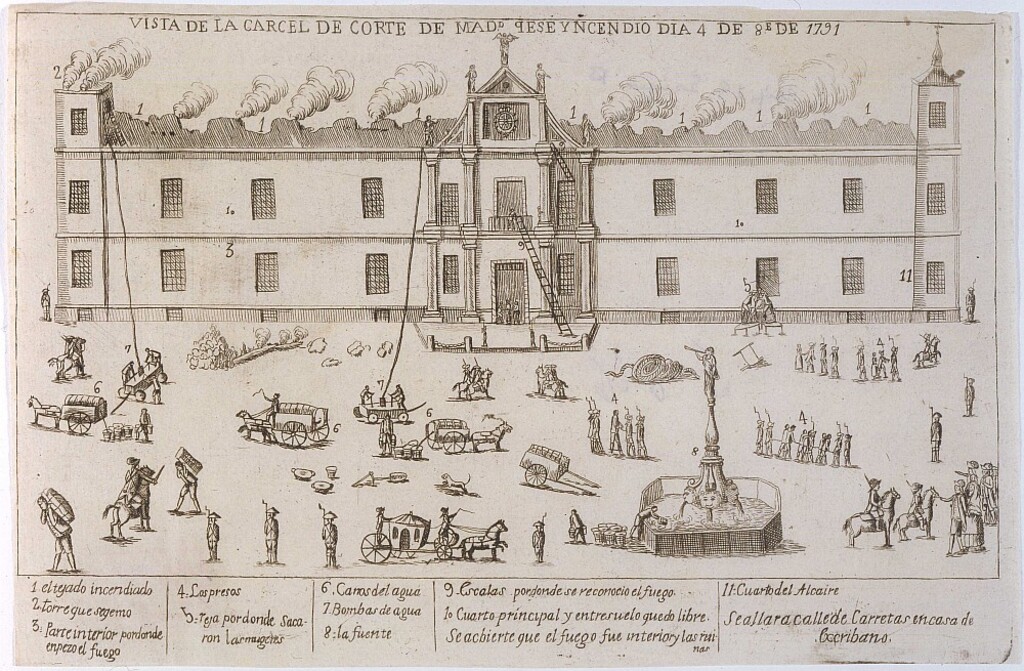 VISTA DE LA CARCEL DE CORTE DE MADD. QESE YNCENDIO DIA 4 DE 8E DE 1791
2
1
1
1
1
1
1
1
1
9
10
10
3
9
11
7
4
6
7
6
6
4
4
8
1 el tejado incendiado
2 torre que se qemo
3: Parte interior por donde
enpezo el fuego
4. Los presos
5: Teja por donde Saca-
ron las mugeres
6. Caros del agua
7. Bombas de agua
8: la fuente
9. Escalas por donde se reconocio el fuego
10 Cuarto principal y entresuelo quedo libre.
Se acbierte que el fuego fue interior y las rui
nas
11: Cuarto del Alcaire
Se allara calle de Carretas en casa de
Escribano.